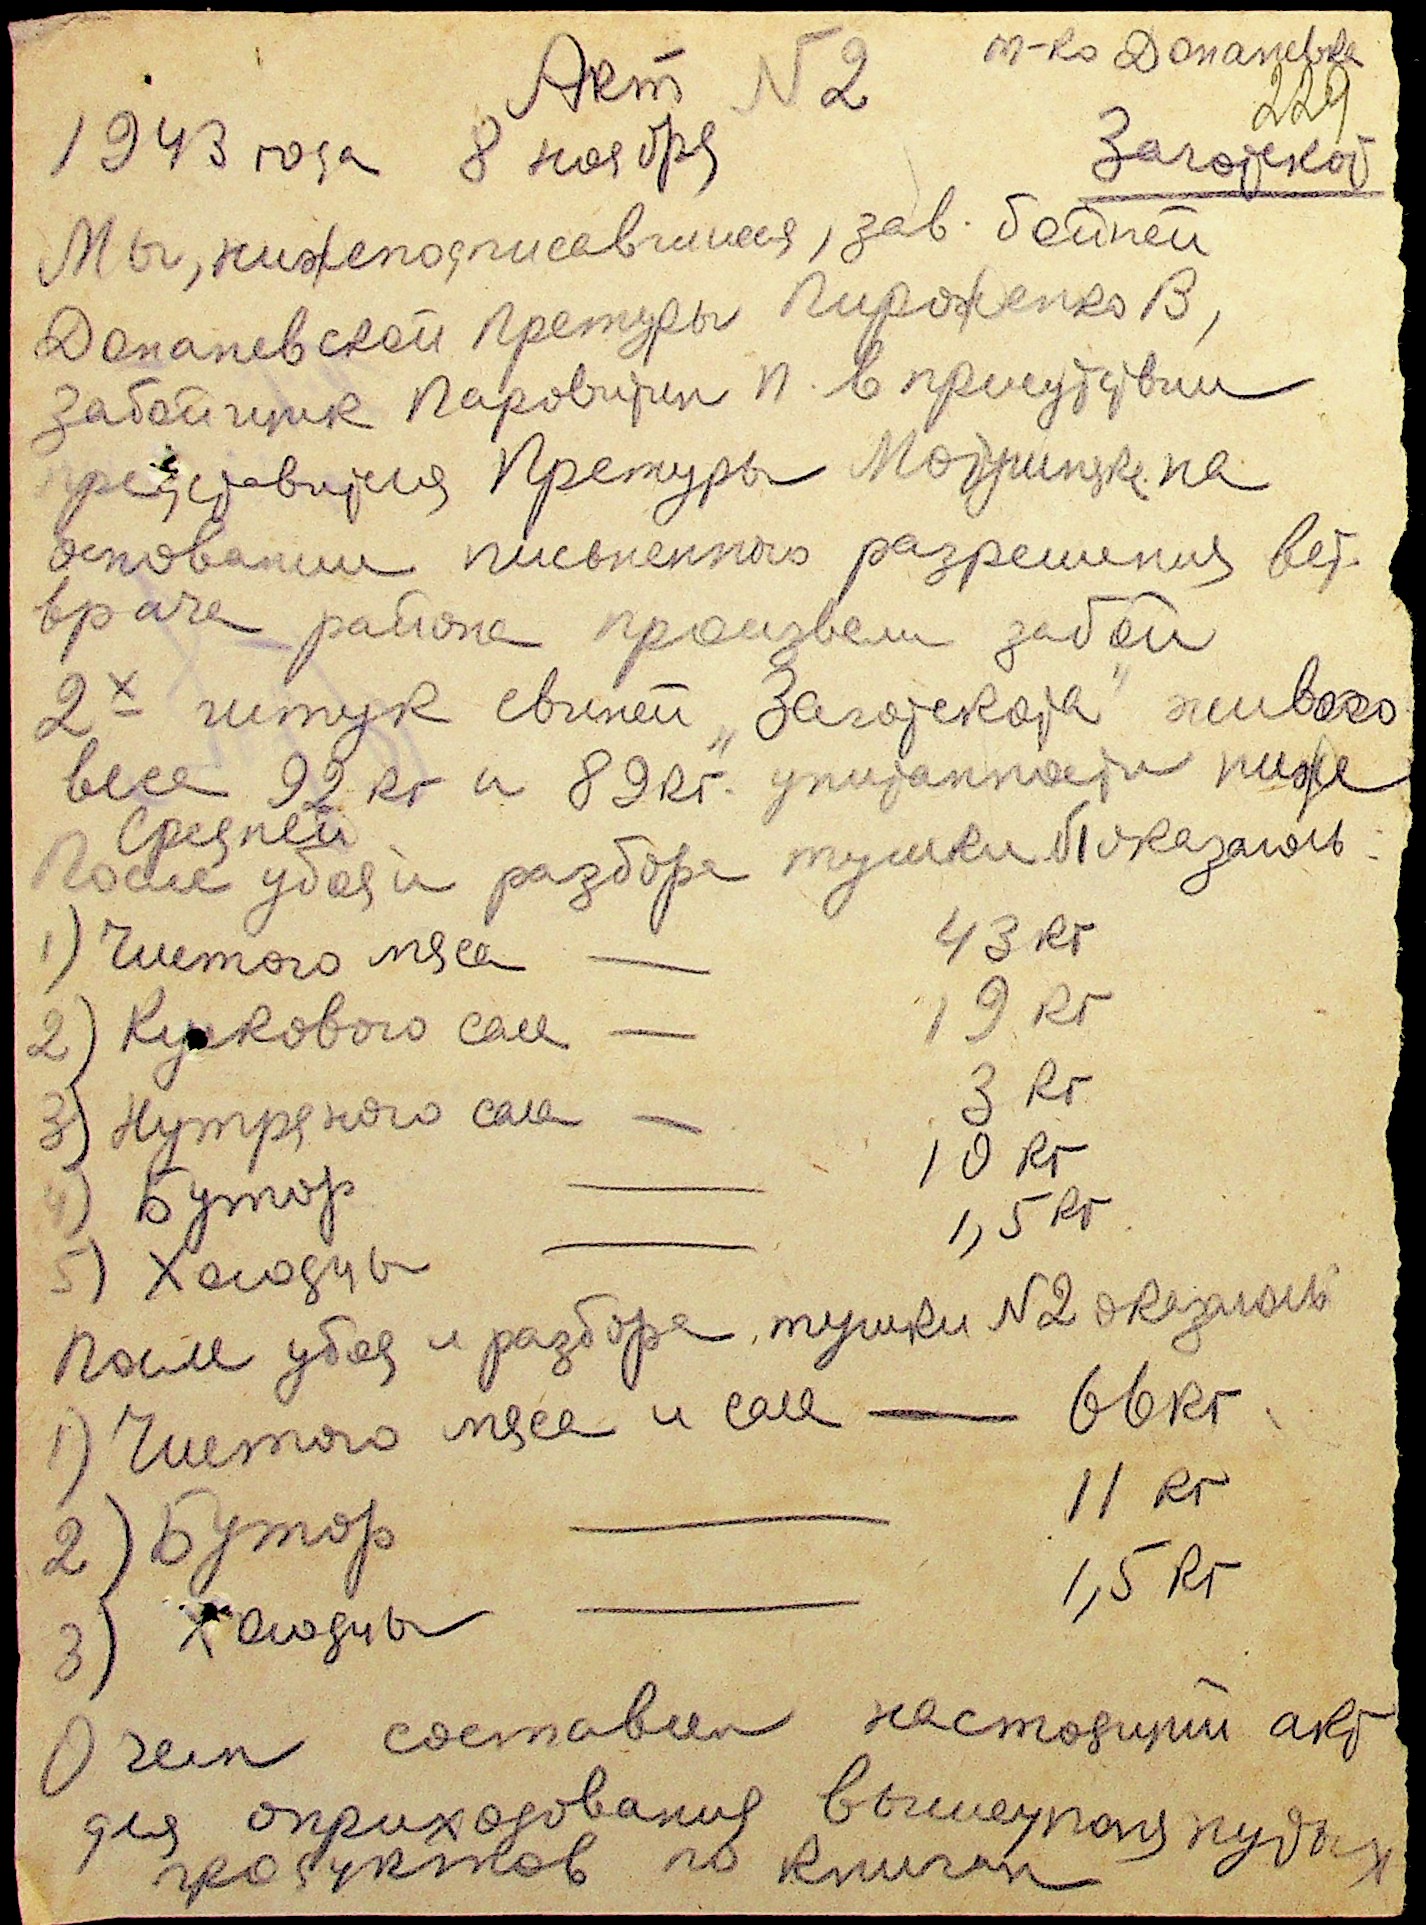 Акт №2 м-ко Доманевка
229
1943 года 8 ноября Заготскот
Мы, нижеподписавшиеся, зав. бойней
Доманевской Претуры Пироженко В,
забойщик П. в присутствии
представителя Претуры на
основании письменного разрешения вет.
врача района произвели забой
2х штук свиней „Заготскота" живого
веса 92 кг и 89 кг. упитанности ниже
средней
После убоя и разбора тушки №1 оказалось:
1) Чистого мяса — 43 кг
2) Кускового сала — 19 кг
3) Нутряного сала — 3 кг
4) Бутор — 10 кг
5) Холодцы — 1,5 кг
После убоя и разбора тушки №2 оказалось
1) Чистого мяса и сала — 66 кг
2) Бутор — 11 кг
3) Холодцы — 1,5 кг
О чем составлен настоящий акт
для оприходования вышеупомянутых
продуктов по книгам